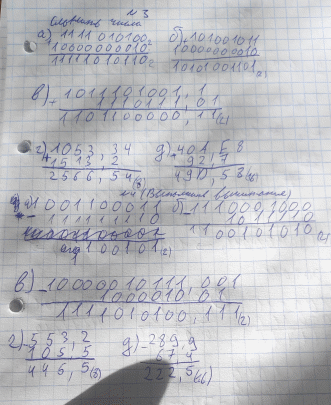 №3
Сложить числа
а) 1111010100 б) +101001011
10000000010 1000000010
11111010110 10101001101(2)
в) 1011101001,1
1110111,01
1101100000,11(2)
г) 1053,34 д) 401,58
+1513,2 92,7
2566,54(8) 490,58(16)
№4 (Выполнить вычитание)
1001100011 б) -1110001000
11111110 1011110
101100101(2) 1100101010(2)
в) -10000010111,001
1000010,01
1111010100,111(2)
г) -553,2 д) -289,9
105,5 67,4
446,5(8) 222,5(16)